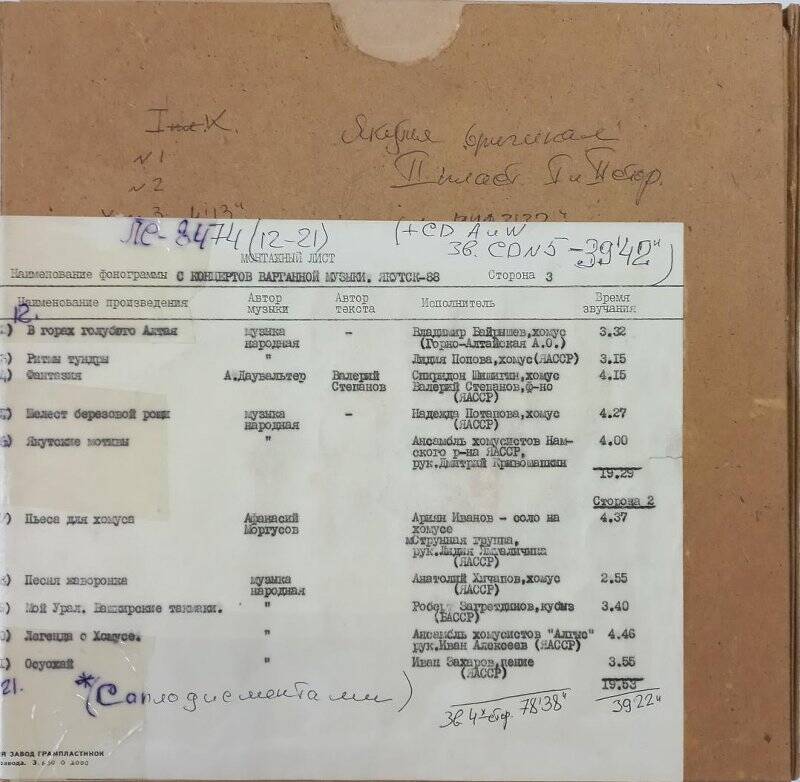 I К.
N 1
N 2
3 4'13"
Якутия оригинал
II пласт. I и II стор.
ЛС-8474 (12-21)
(+CD A и W
Зв. CDN5 - 39'42")
МОНТАЖНЫЙ ЛИСТ
Наименование фонограммы С КОНЦЕРТОВ ВАРГАННОЙ МУЗЫКИ. ЯКУТСК-88 Сторона 3
Наименование произведения Автор музыки Автор текста Исполнитель Время звучания
12.
) В горах голубого Алтая музыка народная - Владимир Байрышев, хомус (Горно-Алтайская А.О.) 3.32
) Ритмы тундры " Лидия Попова, хомус (ЯАССР) 3.15
) Фантазия А.Даувальтер Валерий Степанов Спиридон Шишигин, хомус Валерий Степанов, ф-но (ЯАССР) 4.15
) Шелест березовой рощи музыка народная - Надежда Потапова, хомус (ЯАССР) 4.27
) Якутские мотивы " Ансамбль хомусистов Нам-ского р-на ЯАССР, рук.Дмитрий Кривошапкин 4.00
19.29
Сторона 2
) Пьеса для хомуса Афанасий Моргусов Ариян Иванов - соло на хомусе Струнная группа, рук.Лидия (ЯАССР) 4.37
) Песня жаворонка музыка народная Анатолий Хичапов, хомус (ЯАССР) 2.55
) Мой Урал. Башкирские такмаки. " Роберт Загретдинов, кубыз (БАССР) 3.40
) Легенда о Хомусе. " Ансамбль хомусистов "Алгыс" рук.Иван Алексеев (ЯАССР) 4.46
) Осуохай " Иван Захаров, пение (ЯАССР) 3.55
19.53
21. *(С аплодисментами)
Зв 4х стор. 78'38"
39'22"
Я ЗАВОД ГРАМПЛАСТИНОК